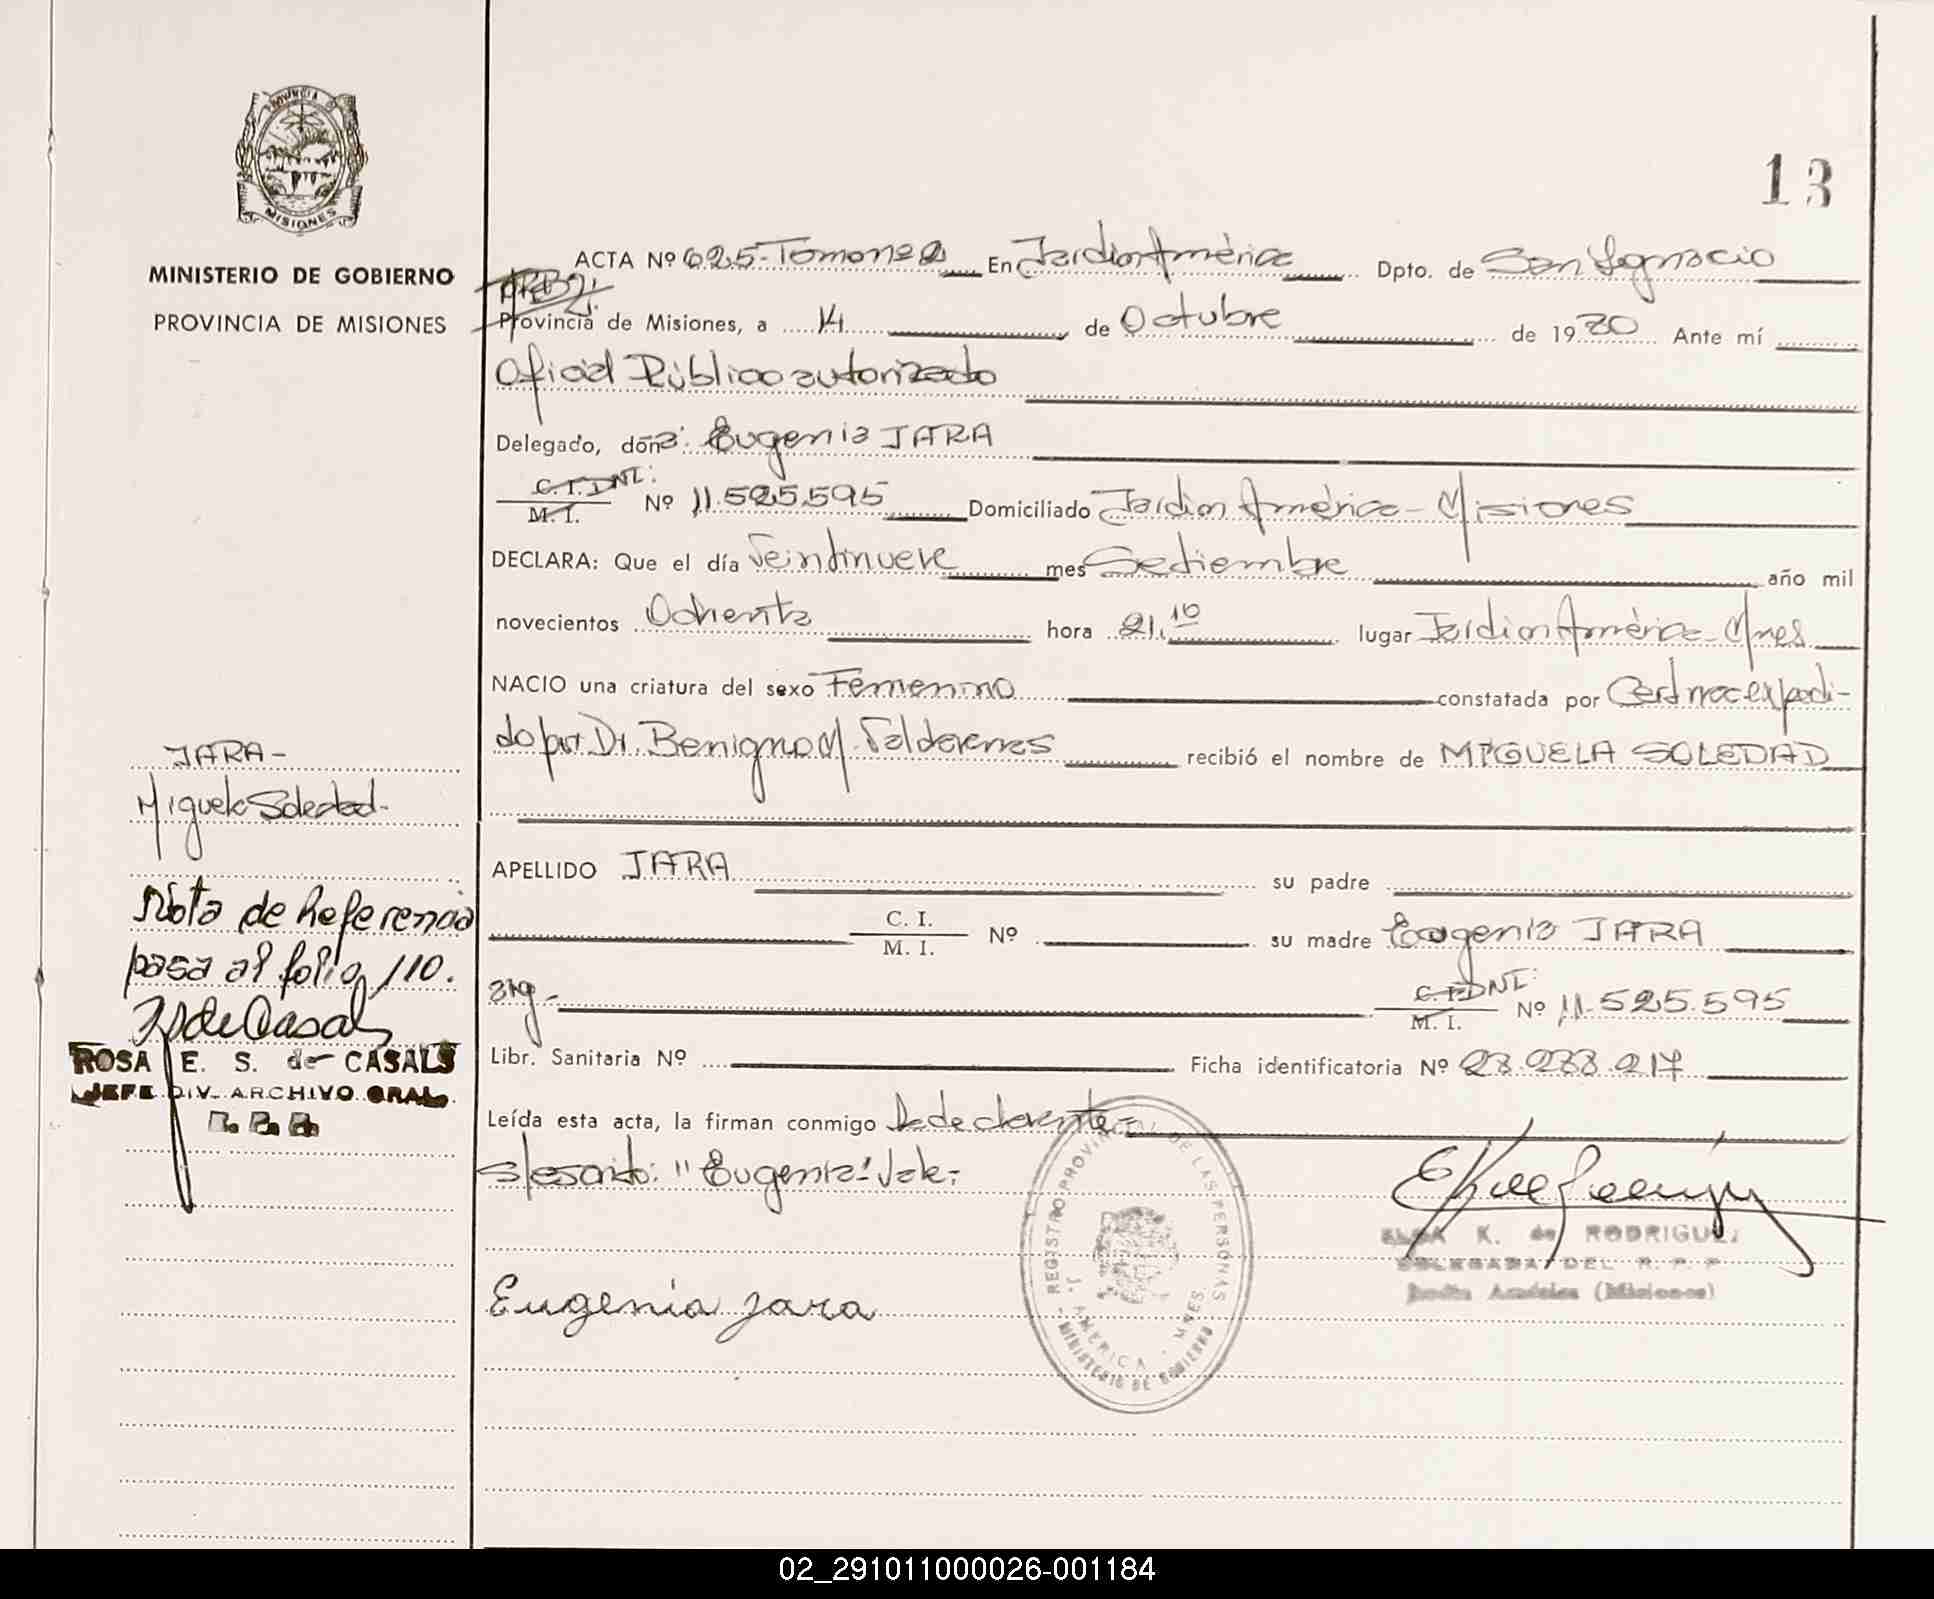 PROVINCIA
MISIONES
MINISTERIO DE GOBIERNO
PROVINCIA DE MISIONES
13
ACTA Nº 625-Tomo nº 2 En Jardin América Dpto. de San Ignacio
Provincia de Misiones, a 14 de Octubre de 1980 Ante mí
Oficial Público autorizado
Delegado, doña: Eugenia JARA
C. I. DNI: M. I. Nº 11.525.595 Domiciliado Jardin América - Misiones
DECLARA: Que el día Veintinueve mes Setiembre año mil
novecientos Ochenta hora 21.10 lugar Jardin América - Mnes
NACIO una criatura del sexo Femenino constatada por Cert nac expedi-
do por Dr. Benigno M. recibió el nombre de MIGUELA SOLEDAD
APELLIDO JARA su padre
C. I. M. I. Nº su madre Eugenia JARA
arg - C. I. DNI: M. I. Nº 11.525.595
Libr. Sanitaria Nº Ficha identificatoria Nº 28.288.217
Leída esta acta, la firman conmigo La declarante -
s/escrito: "Eugenia" Vale:
Eugenia Jara
REGISTRO PROVINCIAL DE LAS PERSONAS
J. AMERICA - MNES.
MINISTERIO DE GOBIERNO
ELSA K. de RODRIGUEZ
DELEGADA DEL R. P. P.
Jardín América (Misiones)
JARA -
Miguela Soledad -
Nota de Referencia
pasa al folio 110.
ROSA E. S. de CASALS
JEFE DIV. ARCHIVO GRAL.
02_291011000026-001184